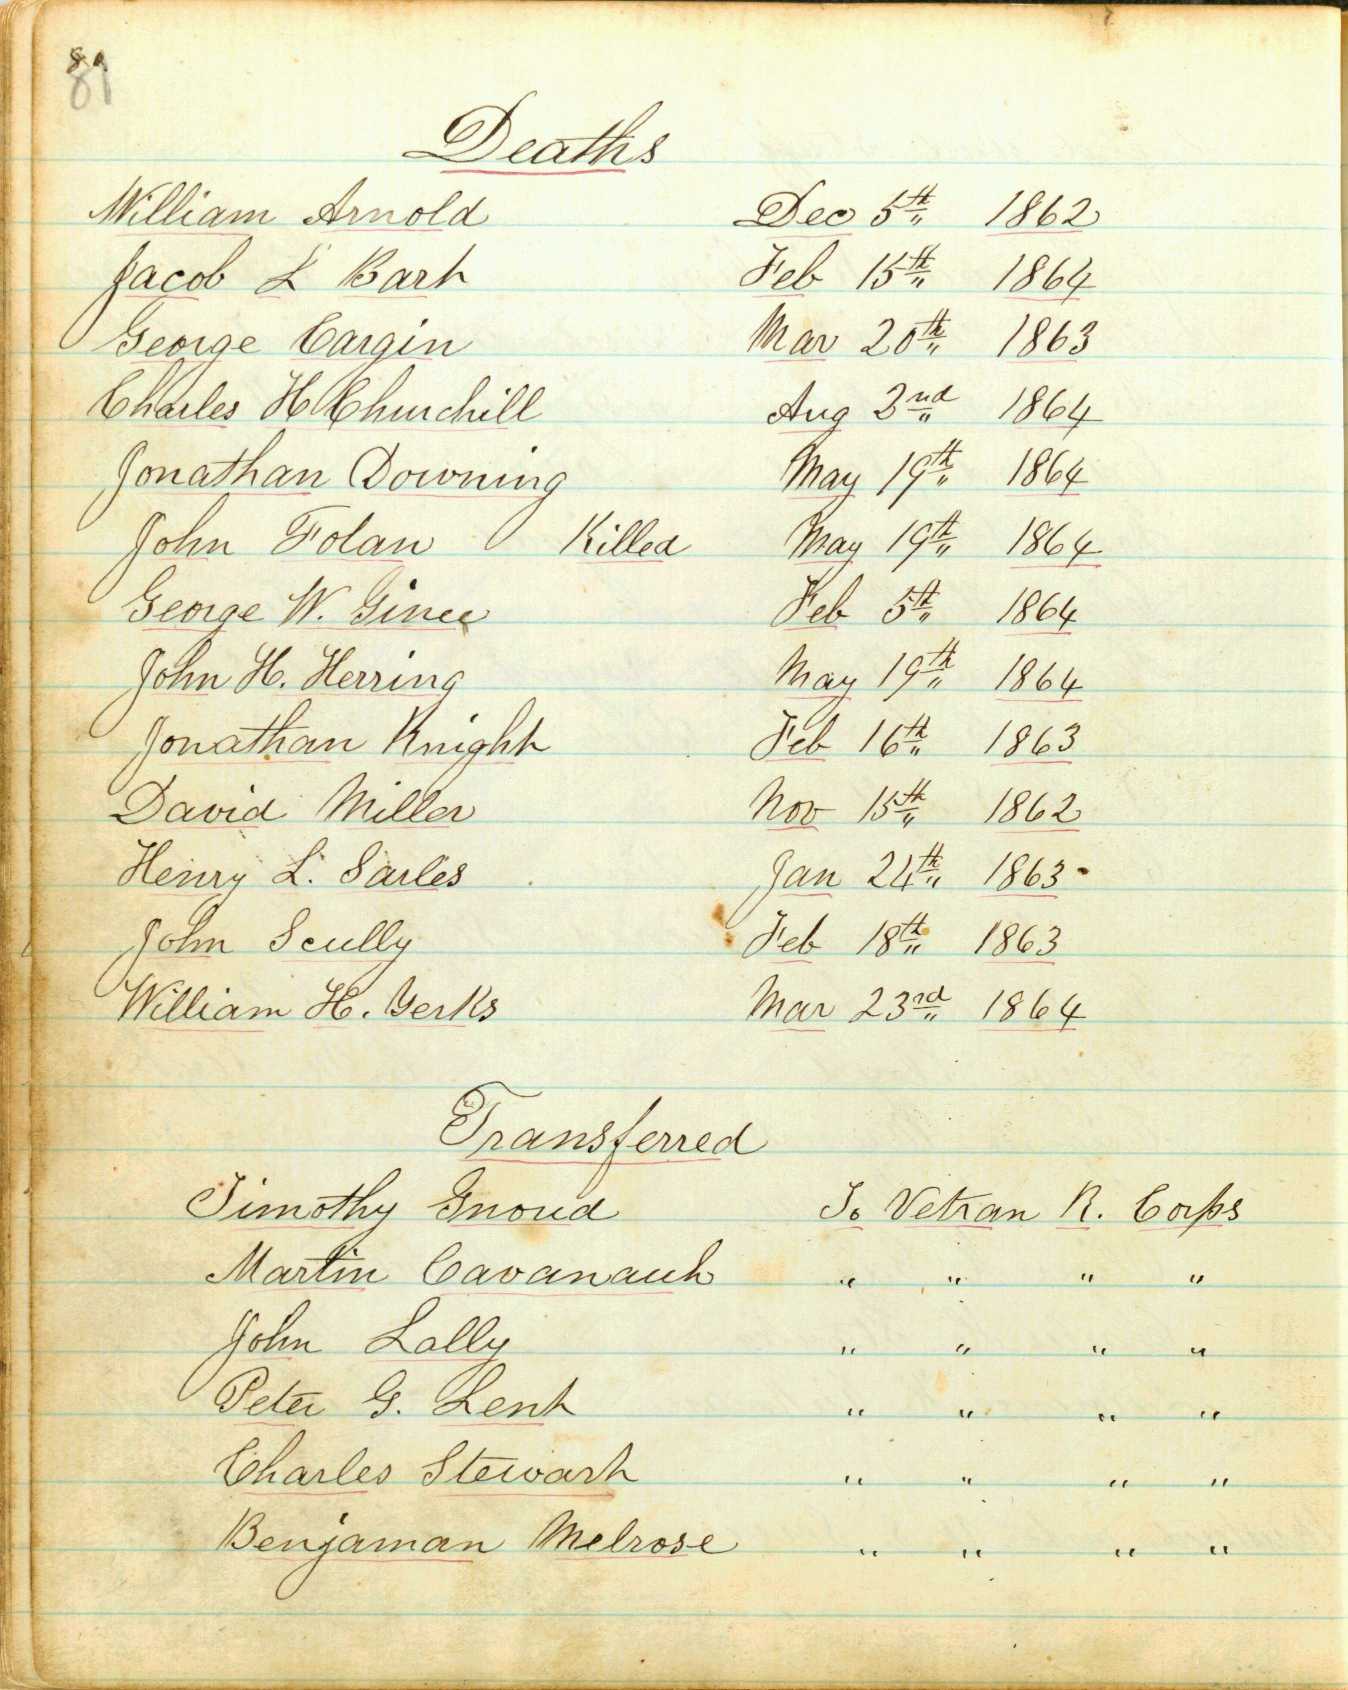 81
Deaths
William Arnold Dec 5th 1862
Jacob L Bart Feb 15th 1864
George Cargin Mar 20th 1863
Charles H Churchill Aug 2nd 1864
Jonathan Downing May 19th 1864
John Folan Killed May 19th 1864
George W. Feb 5th 1864
John H. Herring May 19th 1864
Jonathan Knight Feb 16th 1863
David Miller Nov 15th 1862
Henry L. Sarles Jan 24th 1863
John Scully Feb 18th 1863
William H. Yerks Mar 23rd 1864
Transferred
Timothy Gnoud To Vetran R. Corps
Martin Cavanauh " " " "
John Lally " " " "
Peter G. Lent " " " "
Charles Stewart " " " "
Benjaman Melrose " " " "